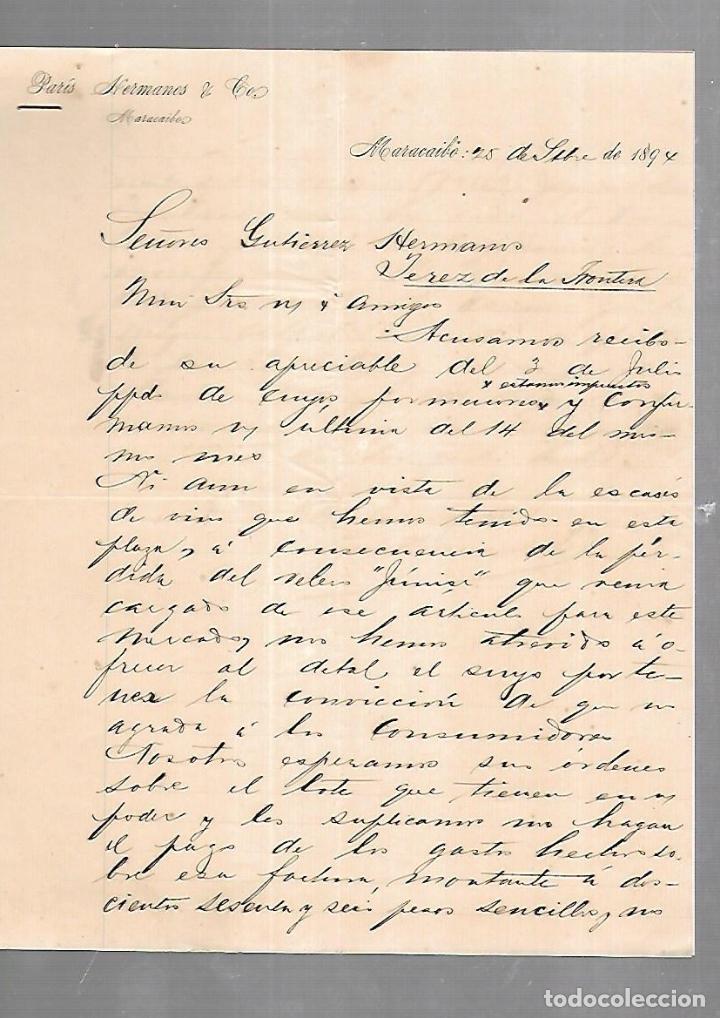 París Hermanos & Co.
Maracaibo
Maracaibo: 25 de Stbre de 1894
Señores Gutierrez Hermanos
Jerez de la Frontera
Muy Srs ns & amigos
Acusamos recibo
de su apreciable del 3 de Julio
x estamos impuestos
ppdo de cuyos pormenores x y Confir-
mamos ns última del 14 del mis-
mo mes
Ni aun en vista de la escasés
de vino que hemos tenido en esta
plaza, á consecuencia de la pér-
dida del velero que venia
cargado de ese artículo para este
Mercado, nos hemos atrevido á o-
frecer al detal el suyo por te-
ner la convicción de que no
agrada á los Consumidores
Nosotros esperamos sus órdenes
sobre el lote que tienen en ns
poder y les suplicamos nos hagan
el pago de los gastos hechos so-
bre esa factura, montante á dos-
cientos sesenta y seis pesos sencillos, no
todocoleccion